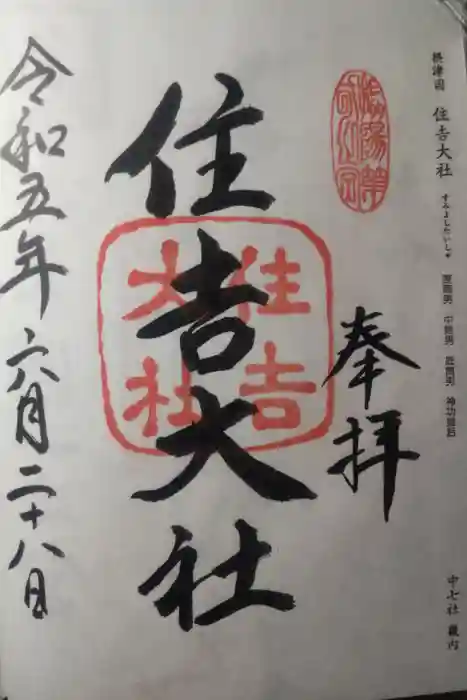 摂津国 住吉大社 すみよしたいしゃ 底筒男 中筒男 表筒男 神功皇后
中七社 畿内
奉拝
住吉大社
住吉大社
令和五年六月二十八日